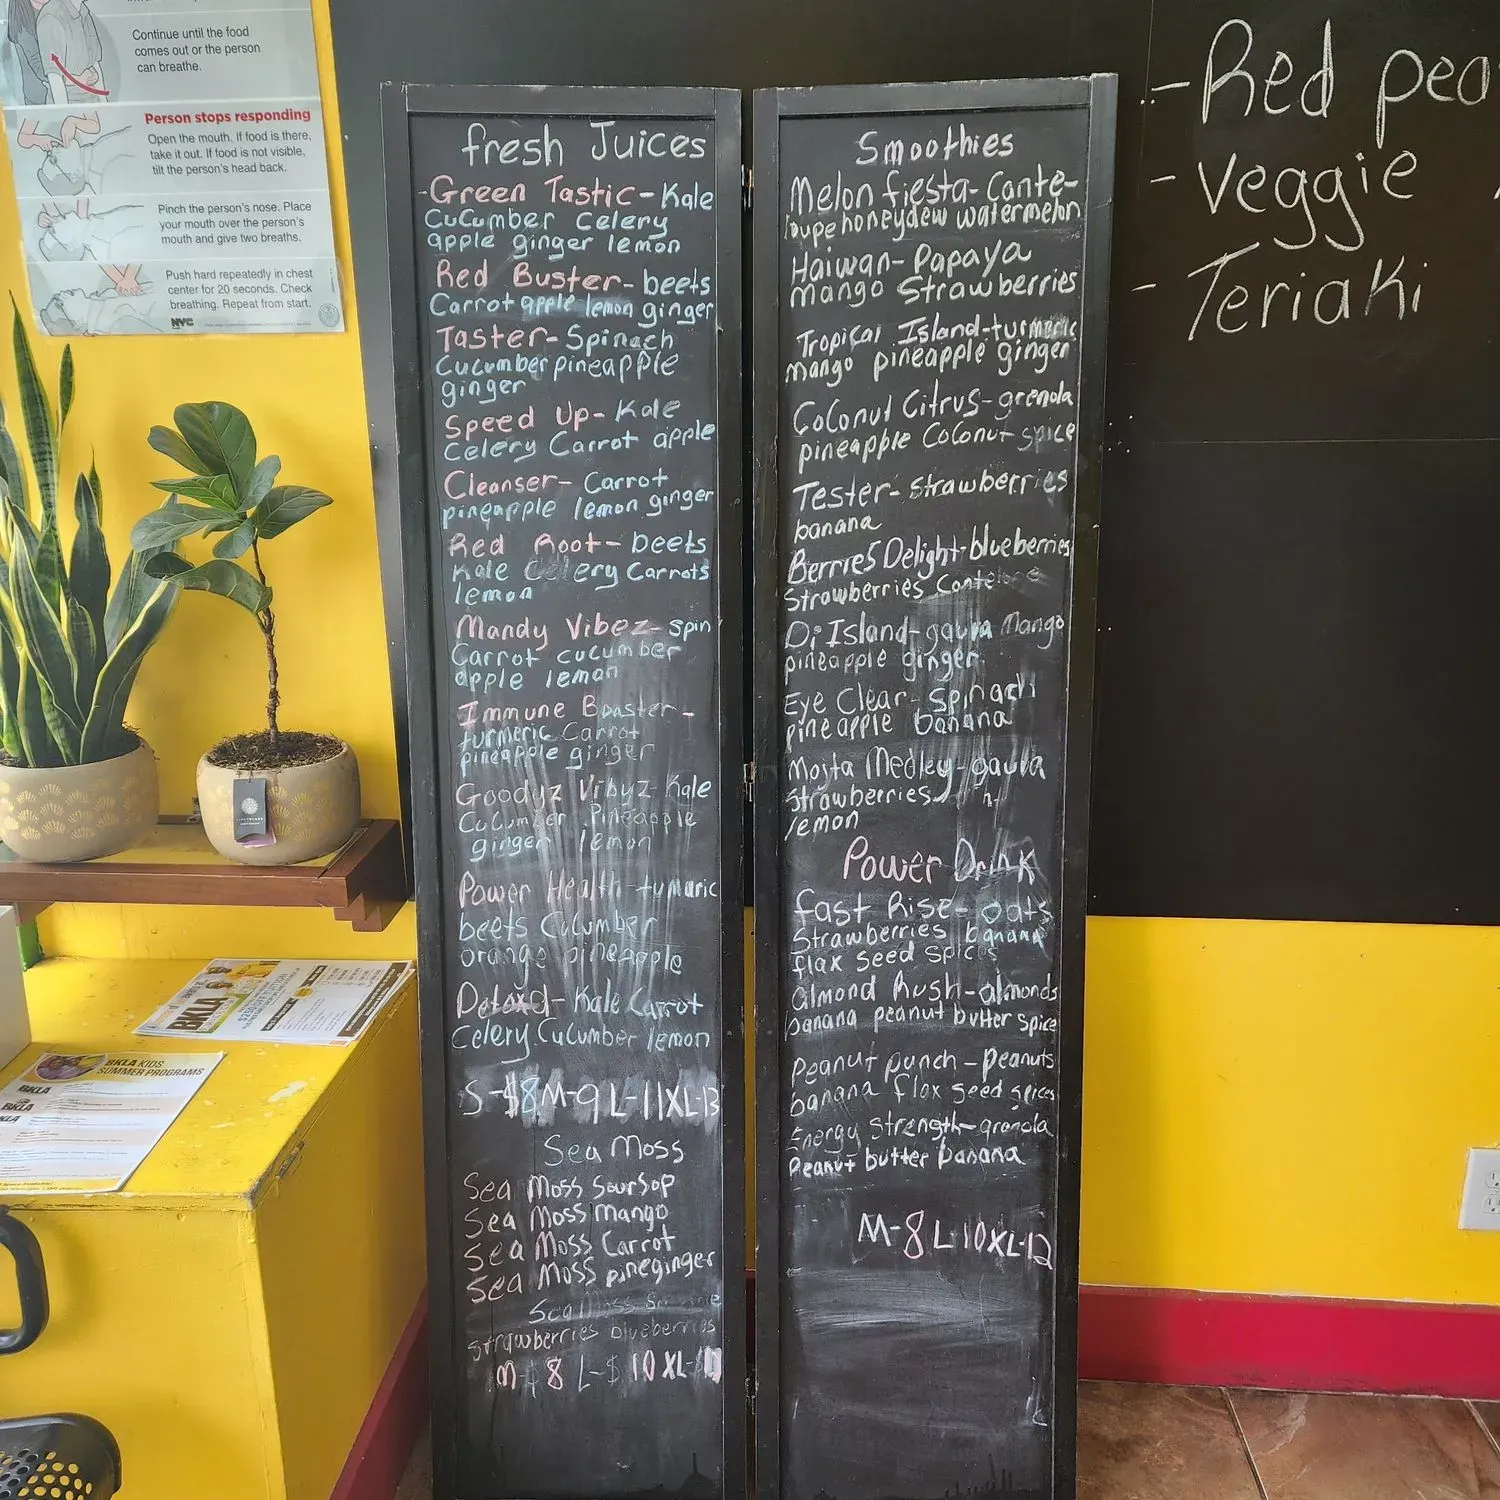 Continue until the food
comes out or the person
can breathe.
Person stops responding
Open the mouth. If food is there,
take it out. If food is not visible,
tilt the person's head back.
Pinch the person's nose. Place
your mouth over the person's
mouth and give two breaths.
Push hard repeatedly in chest
center for 20 seconds. Check
breathing. Repeat from start.
NYC
fresh Juices
-Green Tastic-Kale
CuCumber Celery
apple ginger lemon
Red Buster-beets
Carrot apple lemon ginger
Taster-Spinach
Cucumber pineapple
ginger
Speed Up-Kale
Celery Carrot apple
Cleanser-Carrot
pineapple lemon ginger
Red Root-beets
Kale Celery Carrots
lemon
Mandy Vibez-spin
Carrot cucumber
apple lemon
Immune Boaster-
turmeric Carrot
pineapple ginger
Goodyz Vibyz-Kale
Cucumber Pineapple
ginger lemon
Power Health-tumaric
beets Cucumber
orange pineapple
Detoxd-Kale Carrot
Celery Cucumber lemon
S-$8 M-9 L-11 XL-13
Sea Moss
Sea Moss Soursop
Sea Moss mango
Sea Moss Carrot
Sea Moss pineginger
Sea Moss
strawberries blueberries
M-$8 L-$10 XL-
Smoothies
Melon fiesta-Cante-
loupe honeydew watermelon
Haiwan-Papaya
mango Strawberries
Tropical Island-turmeric
mango pineapple ginger
CoConut Citrus-grenola
pineapple CoConut spice
Tester-strawberries
banana
Berries Delight-blueberries
Strawberries
Di Island-gauva Mango
pineapple ginger
Eye Clear-spinach
pineapple banana
Mojta Medley-gauva
Strawberries
lemon
Power Drink
fast Rise-oats
Strawberries banana
flax seed spices
almond Rush-almonds
banana peanut butter spice
Peanut punch-peanuts
banana flax seed spices
Energy strength-granola
Peanut butter banana
M-8 L 10 XL-12
-Red pea
-Veggie
-Teriaki
BKLA
BKLA KIDS
SUMMER PROGRAMS
BKLA
BKLA